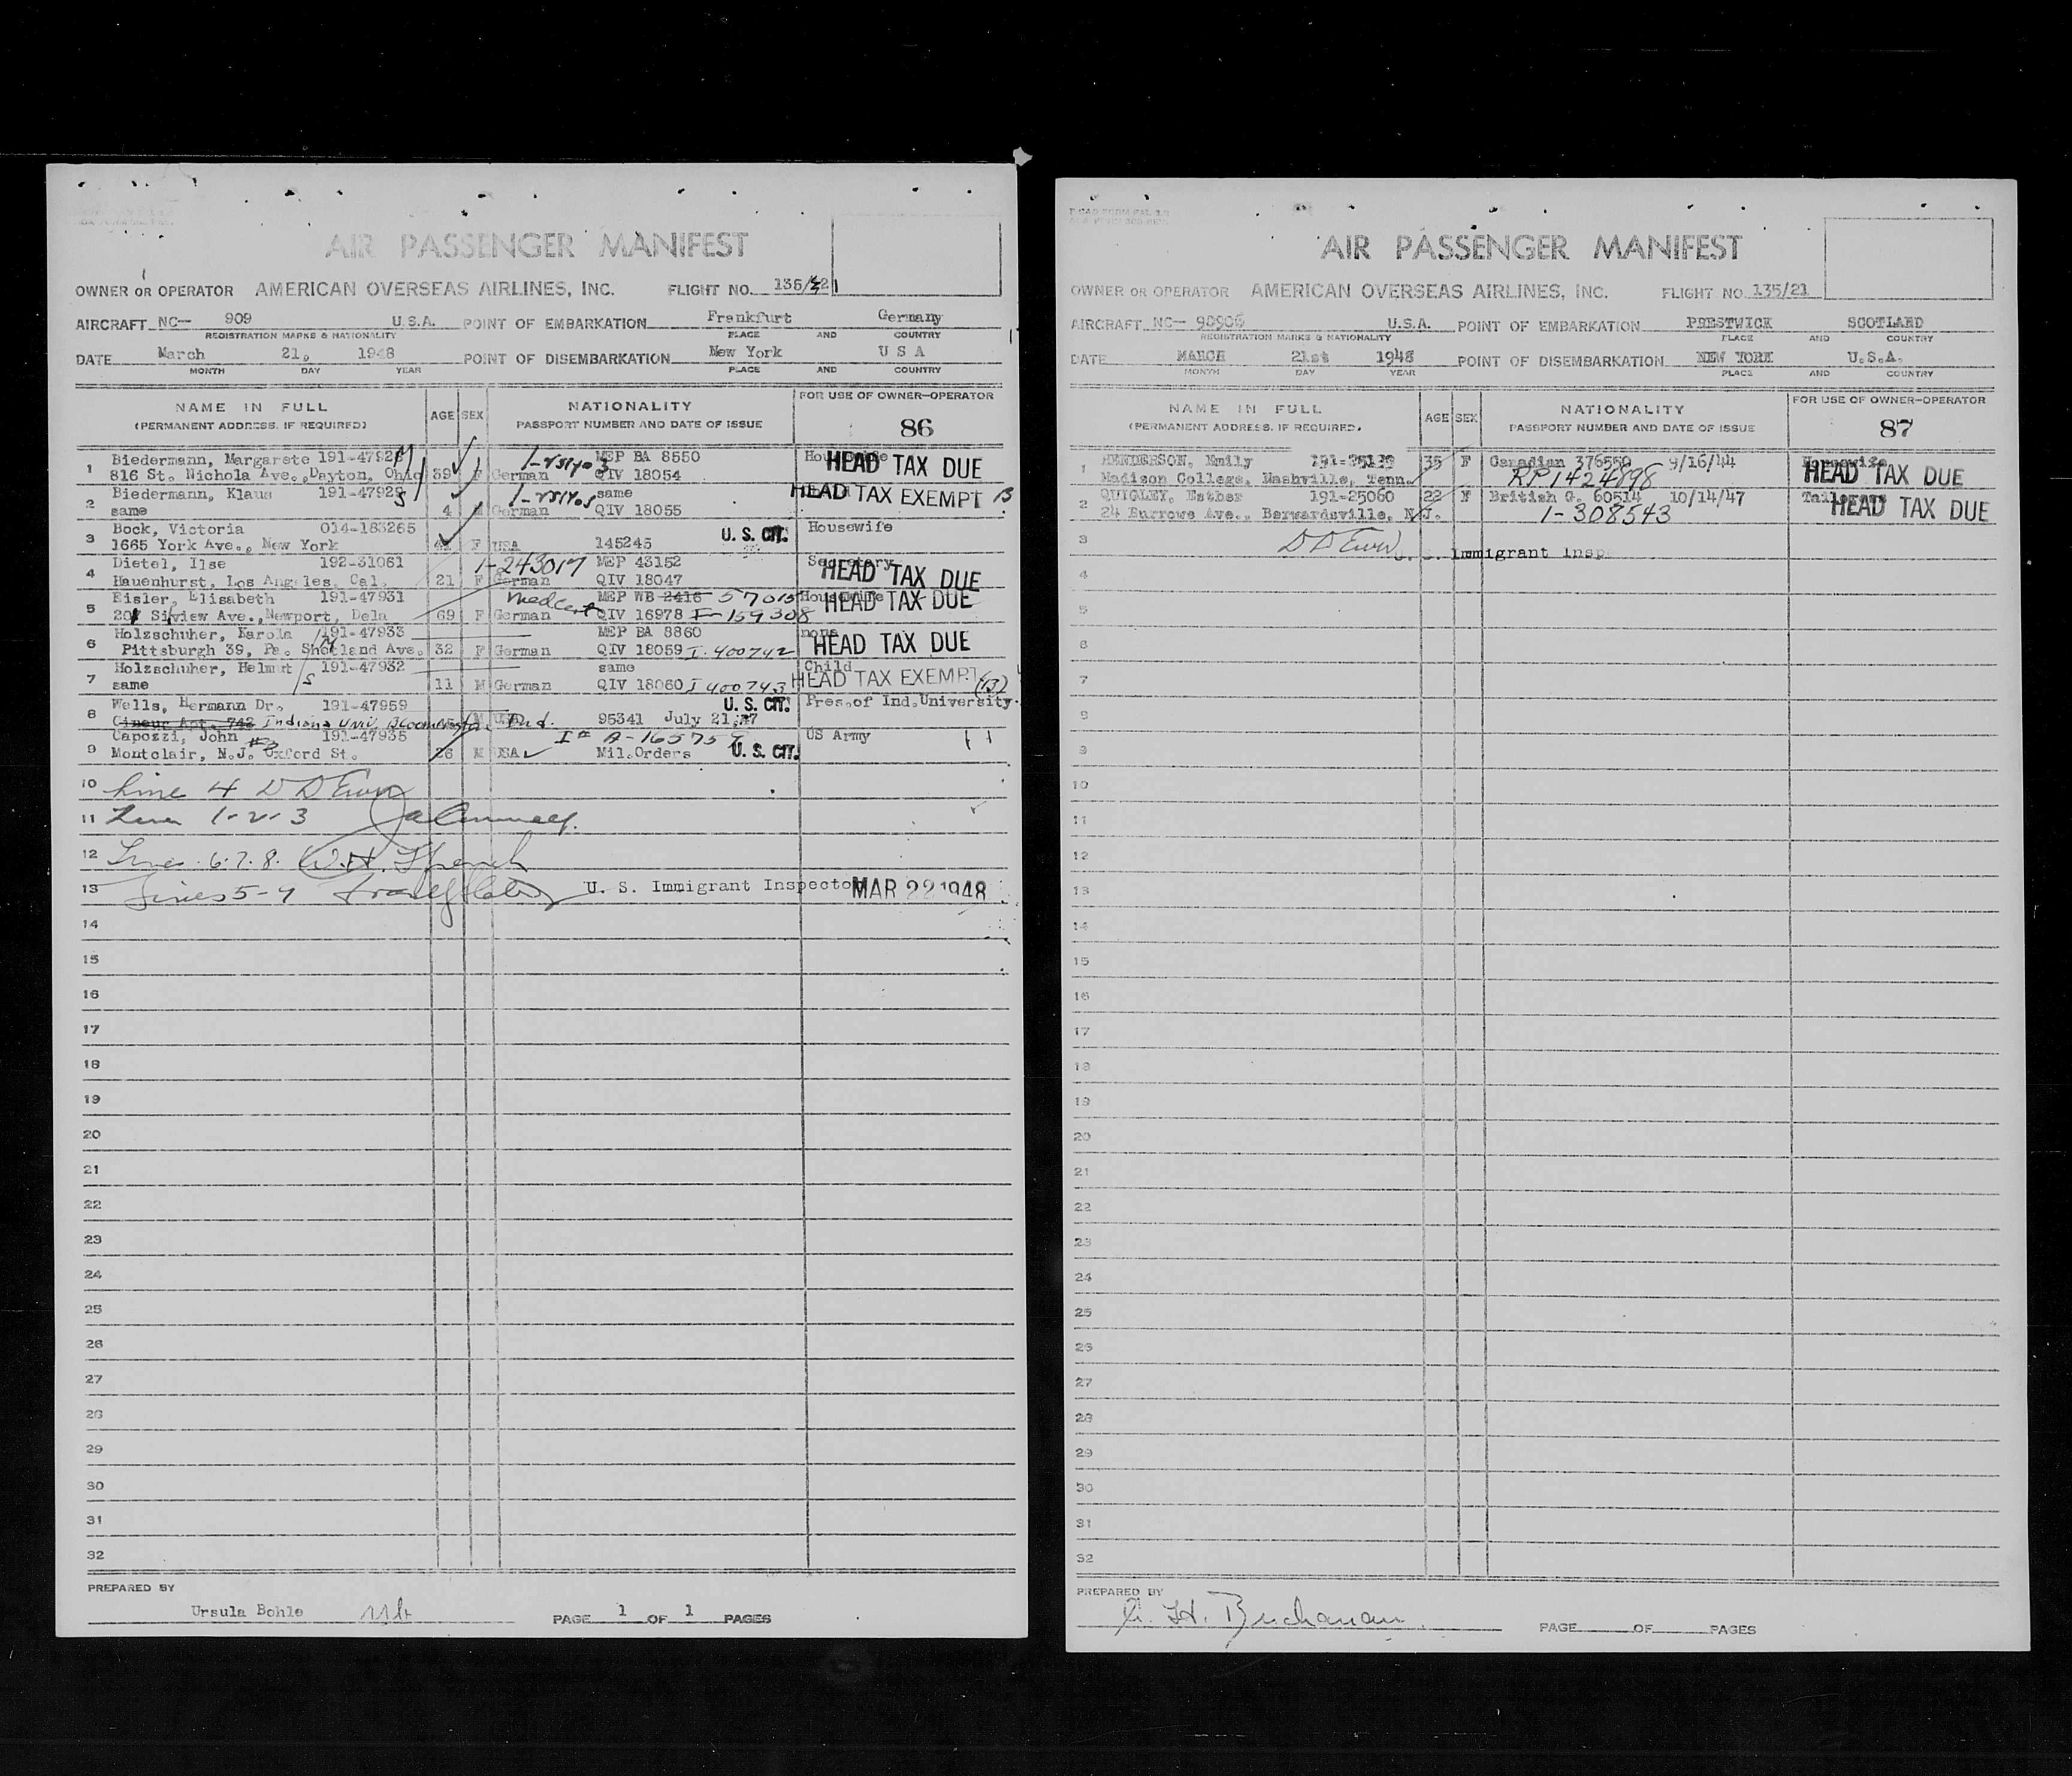 AIR PASSENGER MANIFEST
OWNER OR OPERATOR AMERICAN OVERSEAS AIRLINES, INC. FLIGHT NO. 135/21
AIRCRAFT NC— 909 U.S.A. POINT OF EMBARKATION Frankfurt Germany
REGISTRATION MARKS & NATIONALITY PLACE AND COUNTRY
DATE March 21, 1948 POINT OF DISEMBARKATION New York U S A
MONTH DAY YEAR PLACE AND COUNTRY
NAME IN FULL AGE SEX NATIONALITY FOR USE OF OWNER-OPERATOR
(PERMANENT ADDRESS, IF REQUIRED) PASSPORT NUMBER AND DATE OF ISSUE 86
1 Biedermann, Margarete MEP BA 8550 Housewife
816 St. Nichola Ave., Dayton, Ohio 39 F German QIV 18054 HEAD TAX DUE
2 Biedermann, Klaus same HEAD TAX EXEMPT 13
same 4 M German QIV 18055
3 Bock, Victoria 014-183265 U. S. CIT. Housewife
1665 York Ave., New York F USA 145245
4 Dietel, Ilse 192-31061 1-243017 MEP 43152 Secretary
Hauenhurst, Los Angeles, Cal. 21 F German QIV 18047 HEAD TAX DUE
5 Eisler, Elisabeth 191-47931 Medcert MEP WB 2416 57015 Housewife HEAD TAX DUE
Siview Ave., Newport, Dela 69 F German QIV 16978 I-159308
6 Holzschuher, Karola 191-47933 MEP BA 8860 none
Pittsburgh 39, Pa. Shetland Ave. 32 F German QIV 18059 I-400742 HEAD TAX DUE
7 Holzschuher, Helmut 191-47932 same Child
same 11 M German QIV 18060 I 400743 HEAD TAX EXEMPT (13)
8 Wells, Hermann Dr. 191-47959 U. S. CIT. Pres. of Ind. University
Indiana Univ. Bloomington, Ind. M USA 95341 July 21, 47
9 Capozzi, John 191-47935 A-165759 US Army
Montclair, N.J. #3 Oxford St. 26 M USA Mil.Orders U. S. CIT.
10 Line 4 D D Ewin
11 Lines 1-2-3
12 Lines 6.7.8. W.H. French
13 Lines 5-9 U. S. Immigrant Inspector MAR 22 1948
14
15
16
17
18
19
20
21
22
23
24
25
26
27
28
29
30
31
32
PREPARED BY
Ursula Bohle PAGE 1 OF 1 PAGES
AIR PASSENGER MANIFEST
OWNER OR OPERATOR AMERICAN OVERSEAS AIRLINES, INC. FLIGHT NO. 135/21
AIRCRAFT NC— 90906 U.S.A. POINT OF EMBARKATION PRESTWICK SCOTLAND
REGISTRATION MARKS & NATIONALITY PLACE AND COUNTRY
DATE MARCH 21st 1948 POINT OF DISEMBARKATION NEW YORK U.S.A.
MONTH DAY YEAR PLACE AND COUNTRY
NAME IN FULL AGE SEX NATIONALITY FOR USE OF OWNER-OPERATOR
(PERMANENT ADDRESS, IF REQUIRED) PASSPORT NUMBER AND DATE OF ISSUE 87
1 HENDERSON, Emily 191-25139 35 F Canadian 376559 9/16/44 Housewife
Madison College, Nashville, Tenn. RP 1424898 HEAD TAX DUE
2 QUIGLEY, Esther 191-25060 22 F British G. 60514 10/14/47
24 Burrows Ave., Bernardsville, N.J. 1-308543 HEAD TAX DUE
3 D D Ewin U. S. Immigrant Insp
4
5
6
7
8
9
10
11
12
13
14
15
16
17
18
19
20
21
22
23
24
25
26
27
28
29
30
31
32
PREPARED BY
H. Buchanan PAGE OF PAGES